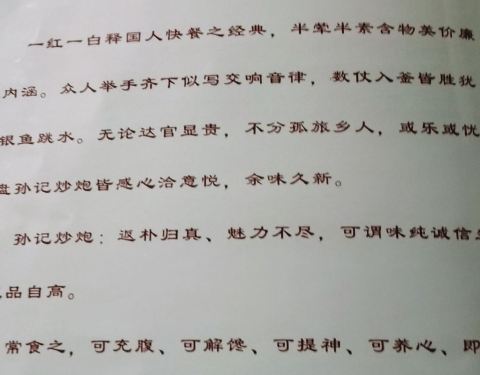 一红一白释国人快餐之经典，半荤半素含物美价廉
内涵。众人举手齐下似写交响音律，数仗入釜皆胜犹
银鱼跳水。无论达官显贵，不分孤旅乡人，或乐或忧
盘孙记炒炮皆感心洽意悦，余味久新。
孙记炒炮：返朴归真、魅力不尽，可谓味纯诚信
品自高。
常食之，可充腹、可解馋、可提神、可养心、即